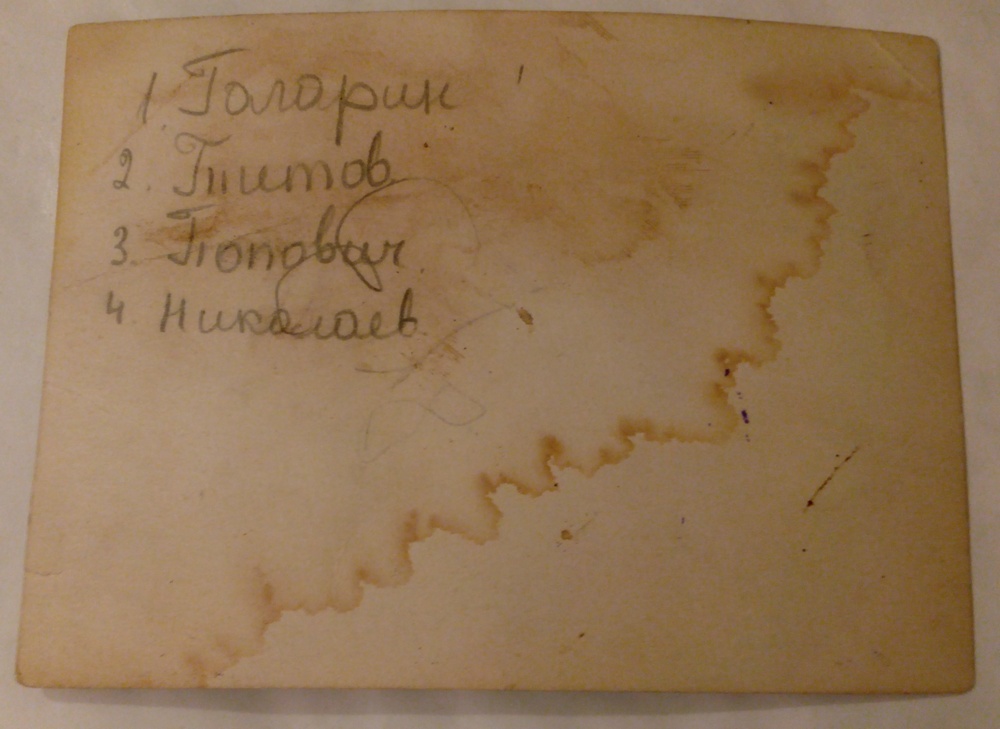 1 Гагарин
2. Титов
3. Попович
4 Николаев